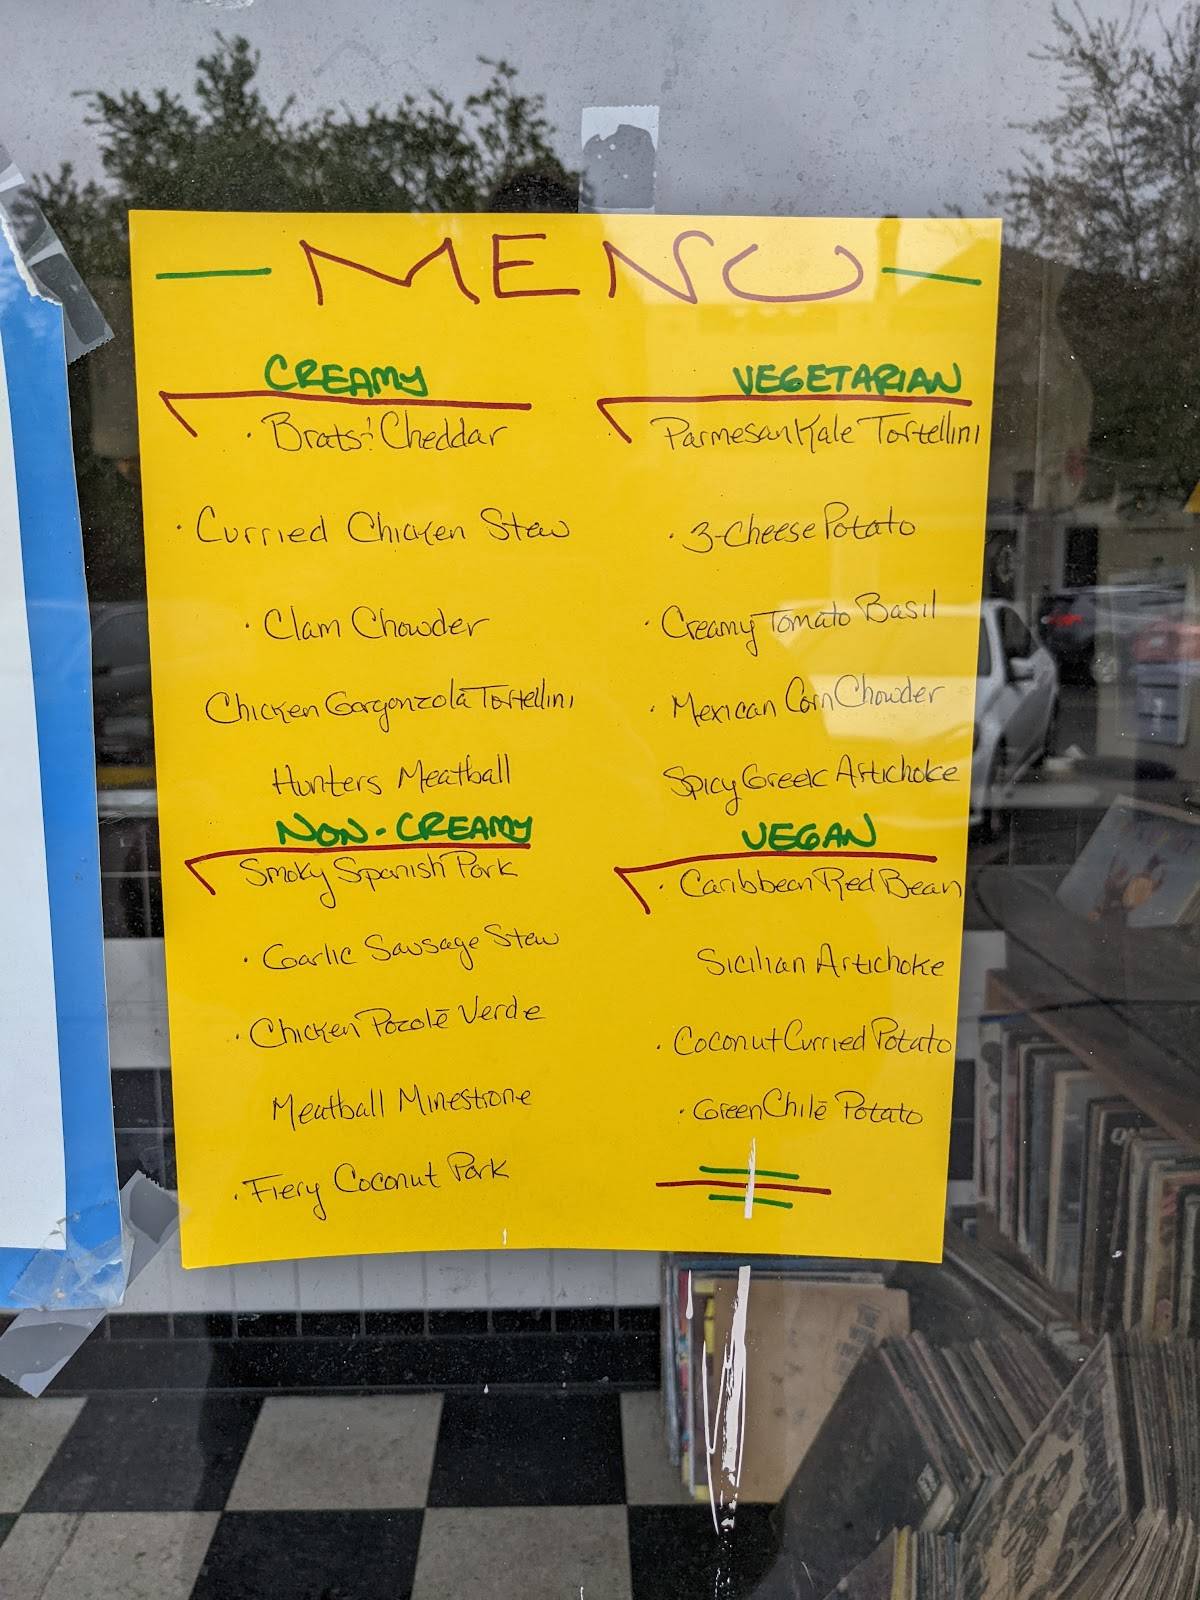 MENU
CREAMY
· Brats & Cheddar
· Curried Chicken Stew
· Clam Chowder
Chicken Gorgonzola Tortellini
Hunters Meatball
NON-CREAMY
Smoky Spanish Pork
· Garlic Sausage Stew
· Chicken Pozolé Verde
Meatball Minestrone
· Fiery Coconut Pork
VEGETARIAN
Parmesan Kale Tortellini
· 3-Cheese Potato
· Creamy Tomato Basil
· Mexican Corn Chowder
Spicy Greek Artichoke
VEGAN
· Caribbean Red Bean
Sicilian Artichoke
· Coconut Curried Potato
· Green Chilé Potato